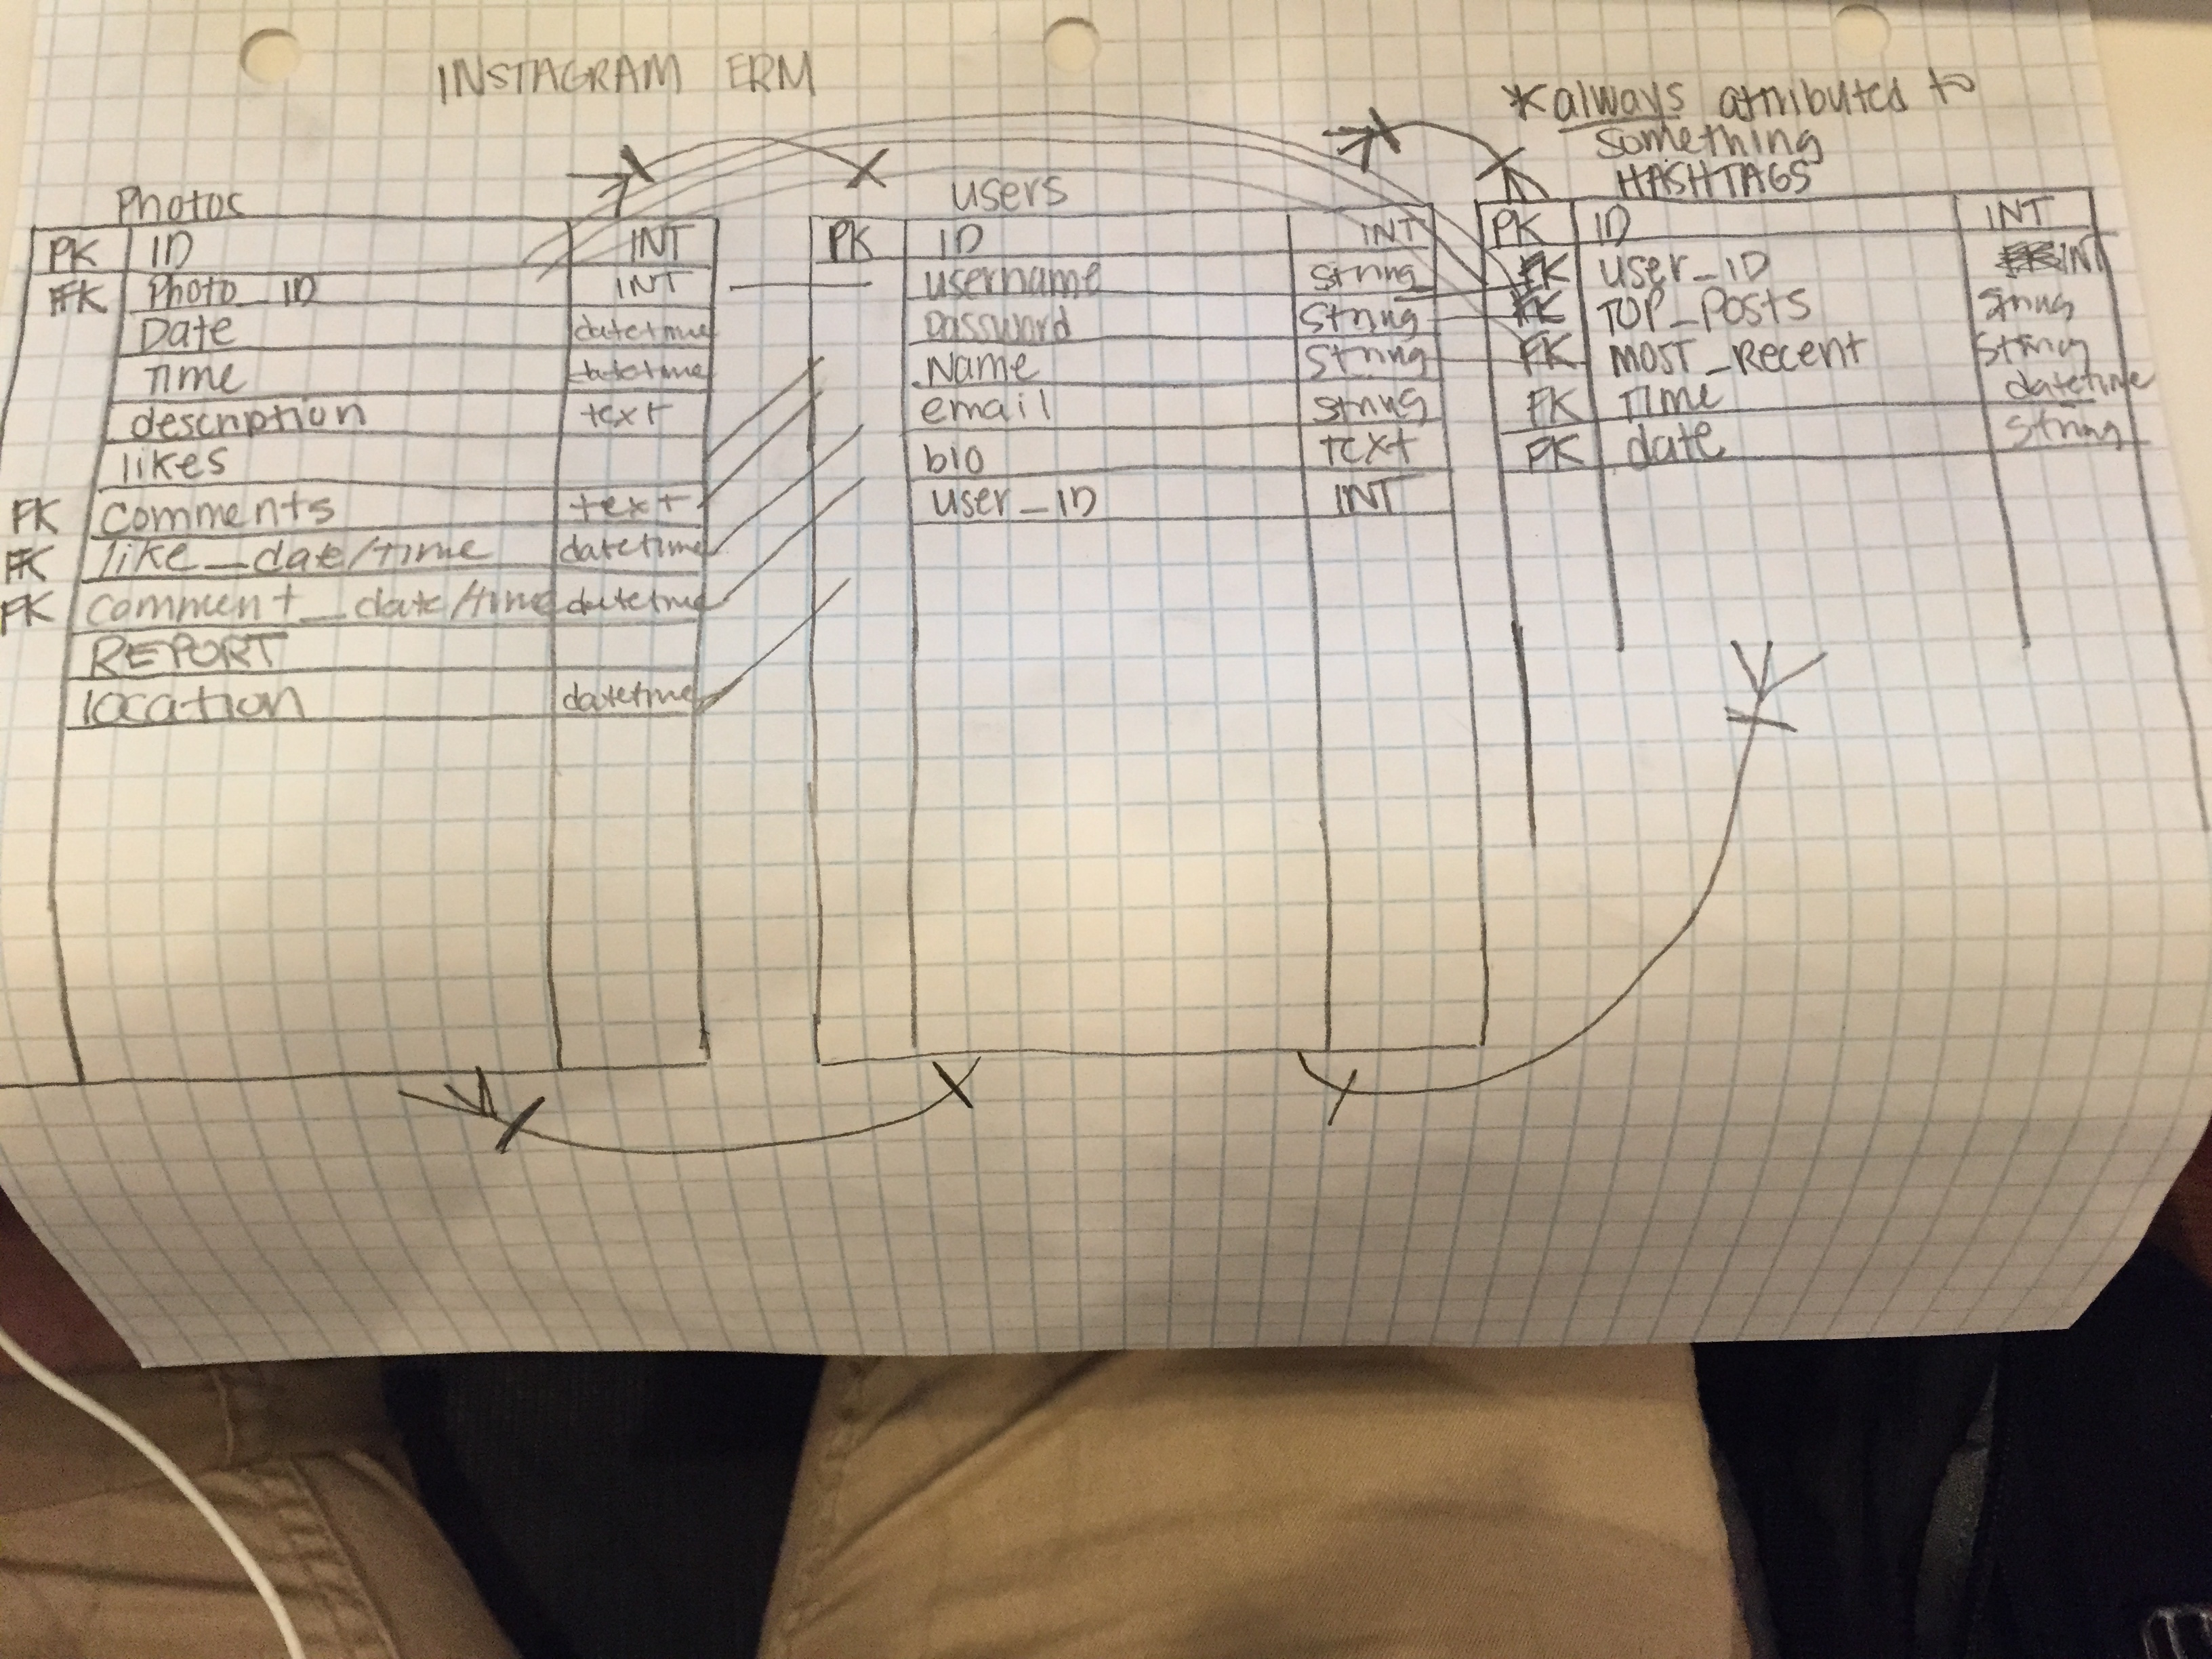 INSTAGRAM ERM
*always attributed to
something
HASHTAGS
Photos
PK ID INT
FK Photo_ID INT
Date datetime
Time datetime
description text
likes
FK comments text
FK like_date/time datetime
FK comment_date/time datetime
REPORT
location datetime
users
PK ID INT
username String
password String
Name String
email String
bio Text
user_ID INT
PK ID INT
FK user_ID INT
FK TOP_POSTS String
FK MOST_Recent String
FK Time datetime
PK date String